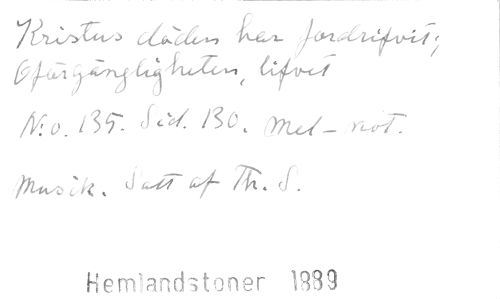 Kristus döden har fördrifvit;
Oförgängligheten, lifvet
N:o. 135. Sid. 130. Mel-not.
Musik. Satt af Th. S.
Hemlandstoner 1889